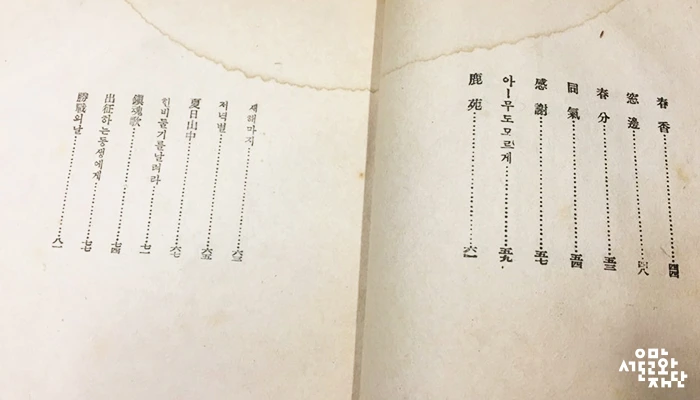 春香……四四
窓邊……四八
春分……五三
同氣……五四
感謝……五七
아ー무도모르게……五九
鹿苑……六一
새해마지……六三
저녁별……六五
夏日山中……六七
흰비둘기를날려라……七一
鎭魂歌……七四
出征하는동생에게……七七
勝戰의날……八一
서울문화재단